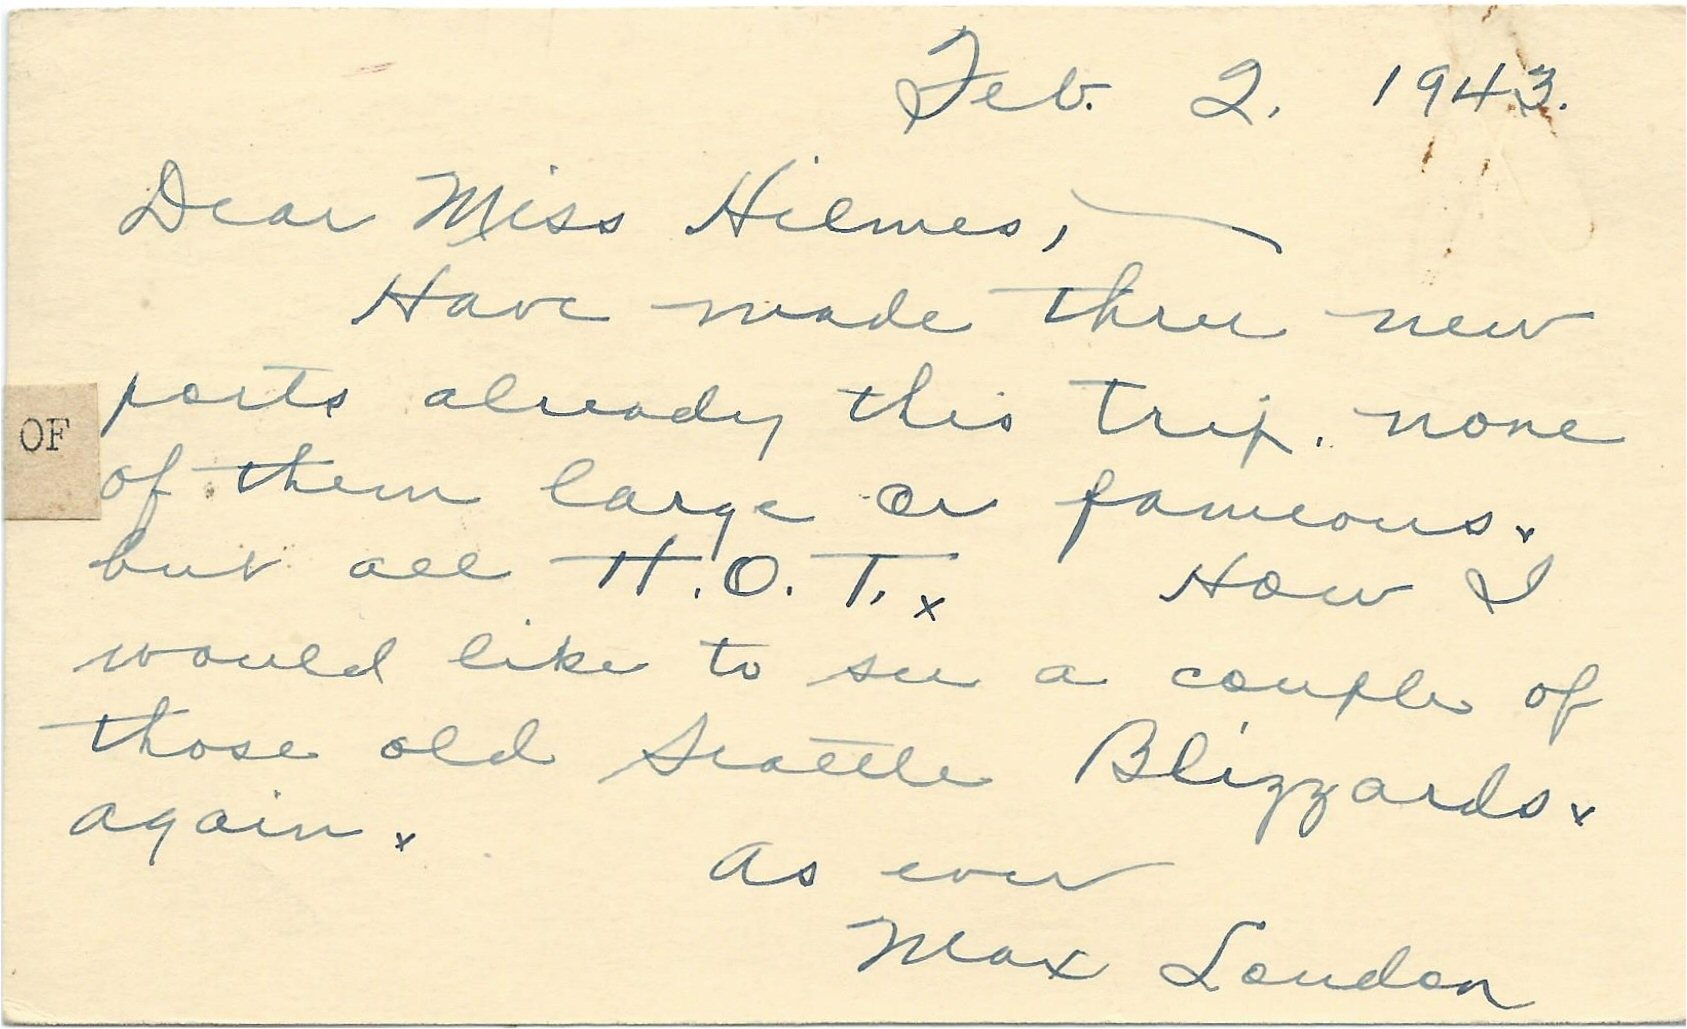 Feb. 2. 1943.
Dear Miss Hilmes,
Have made three new
ports already this trip. none
OF
of them large or fameous.
but all H.O.T. How I
would like to see a couple of
those old Seattle Blizzards.
again.
As ever
Max Loudon